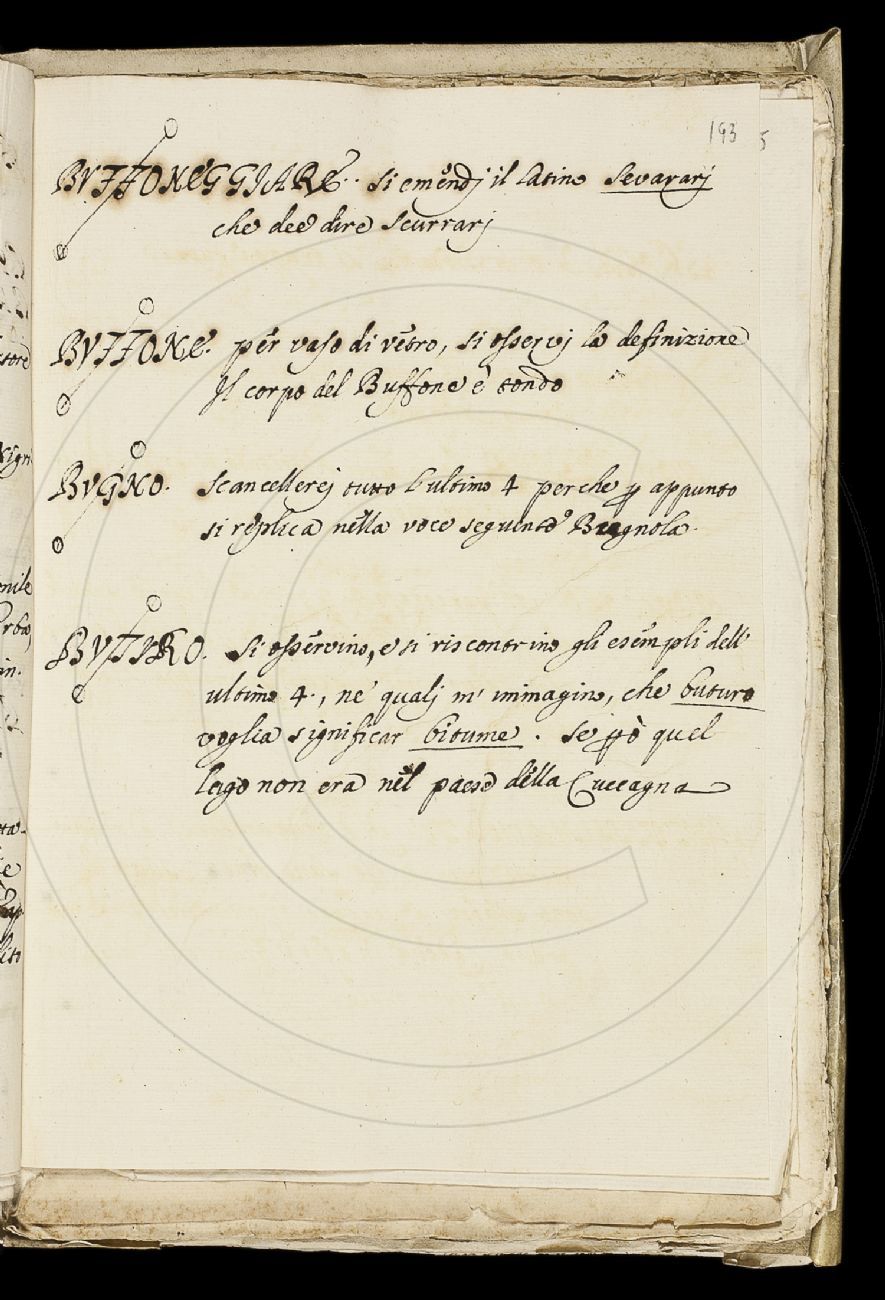 193 5
BVFFONEGGIARE. si emendj il latino sevararj
che dee dire scurrarj
BVFFONE. per vaso di vetro, si osservj la definizione
Il corpo del Buffone è tondo
BVGNO. scancellerej tutto l'ultimo 4 perche p appunto
si replica nella voce seguente Bugnola.
BVTIRO. si osservino, e si riscontrino gli esempli dell'
ultimo 4., ne' qualj m' immagino, che buturo
voglia significar bitume. se pò quel
lago non era nel paese della Cuccagna
store
nile
rba,
in.